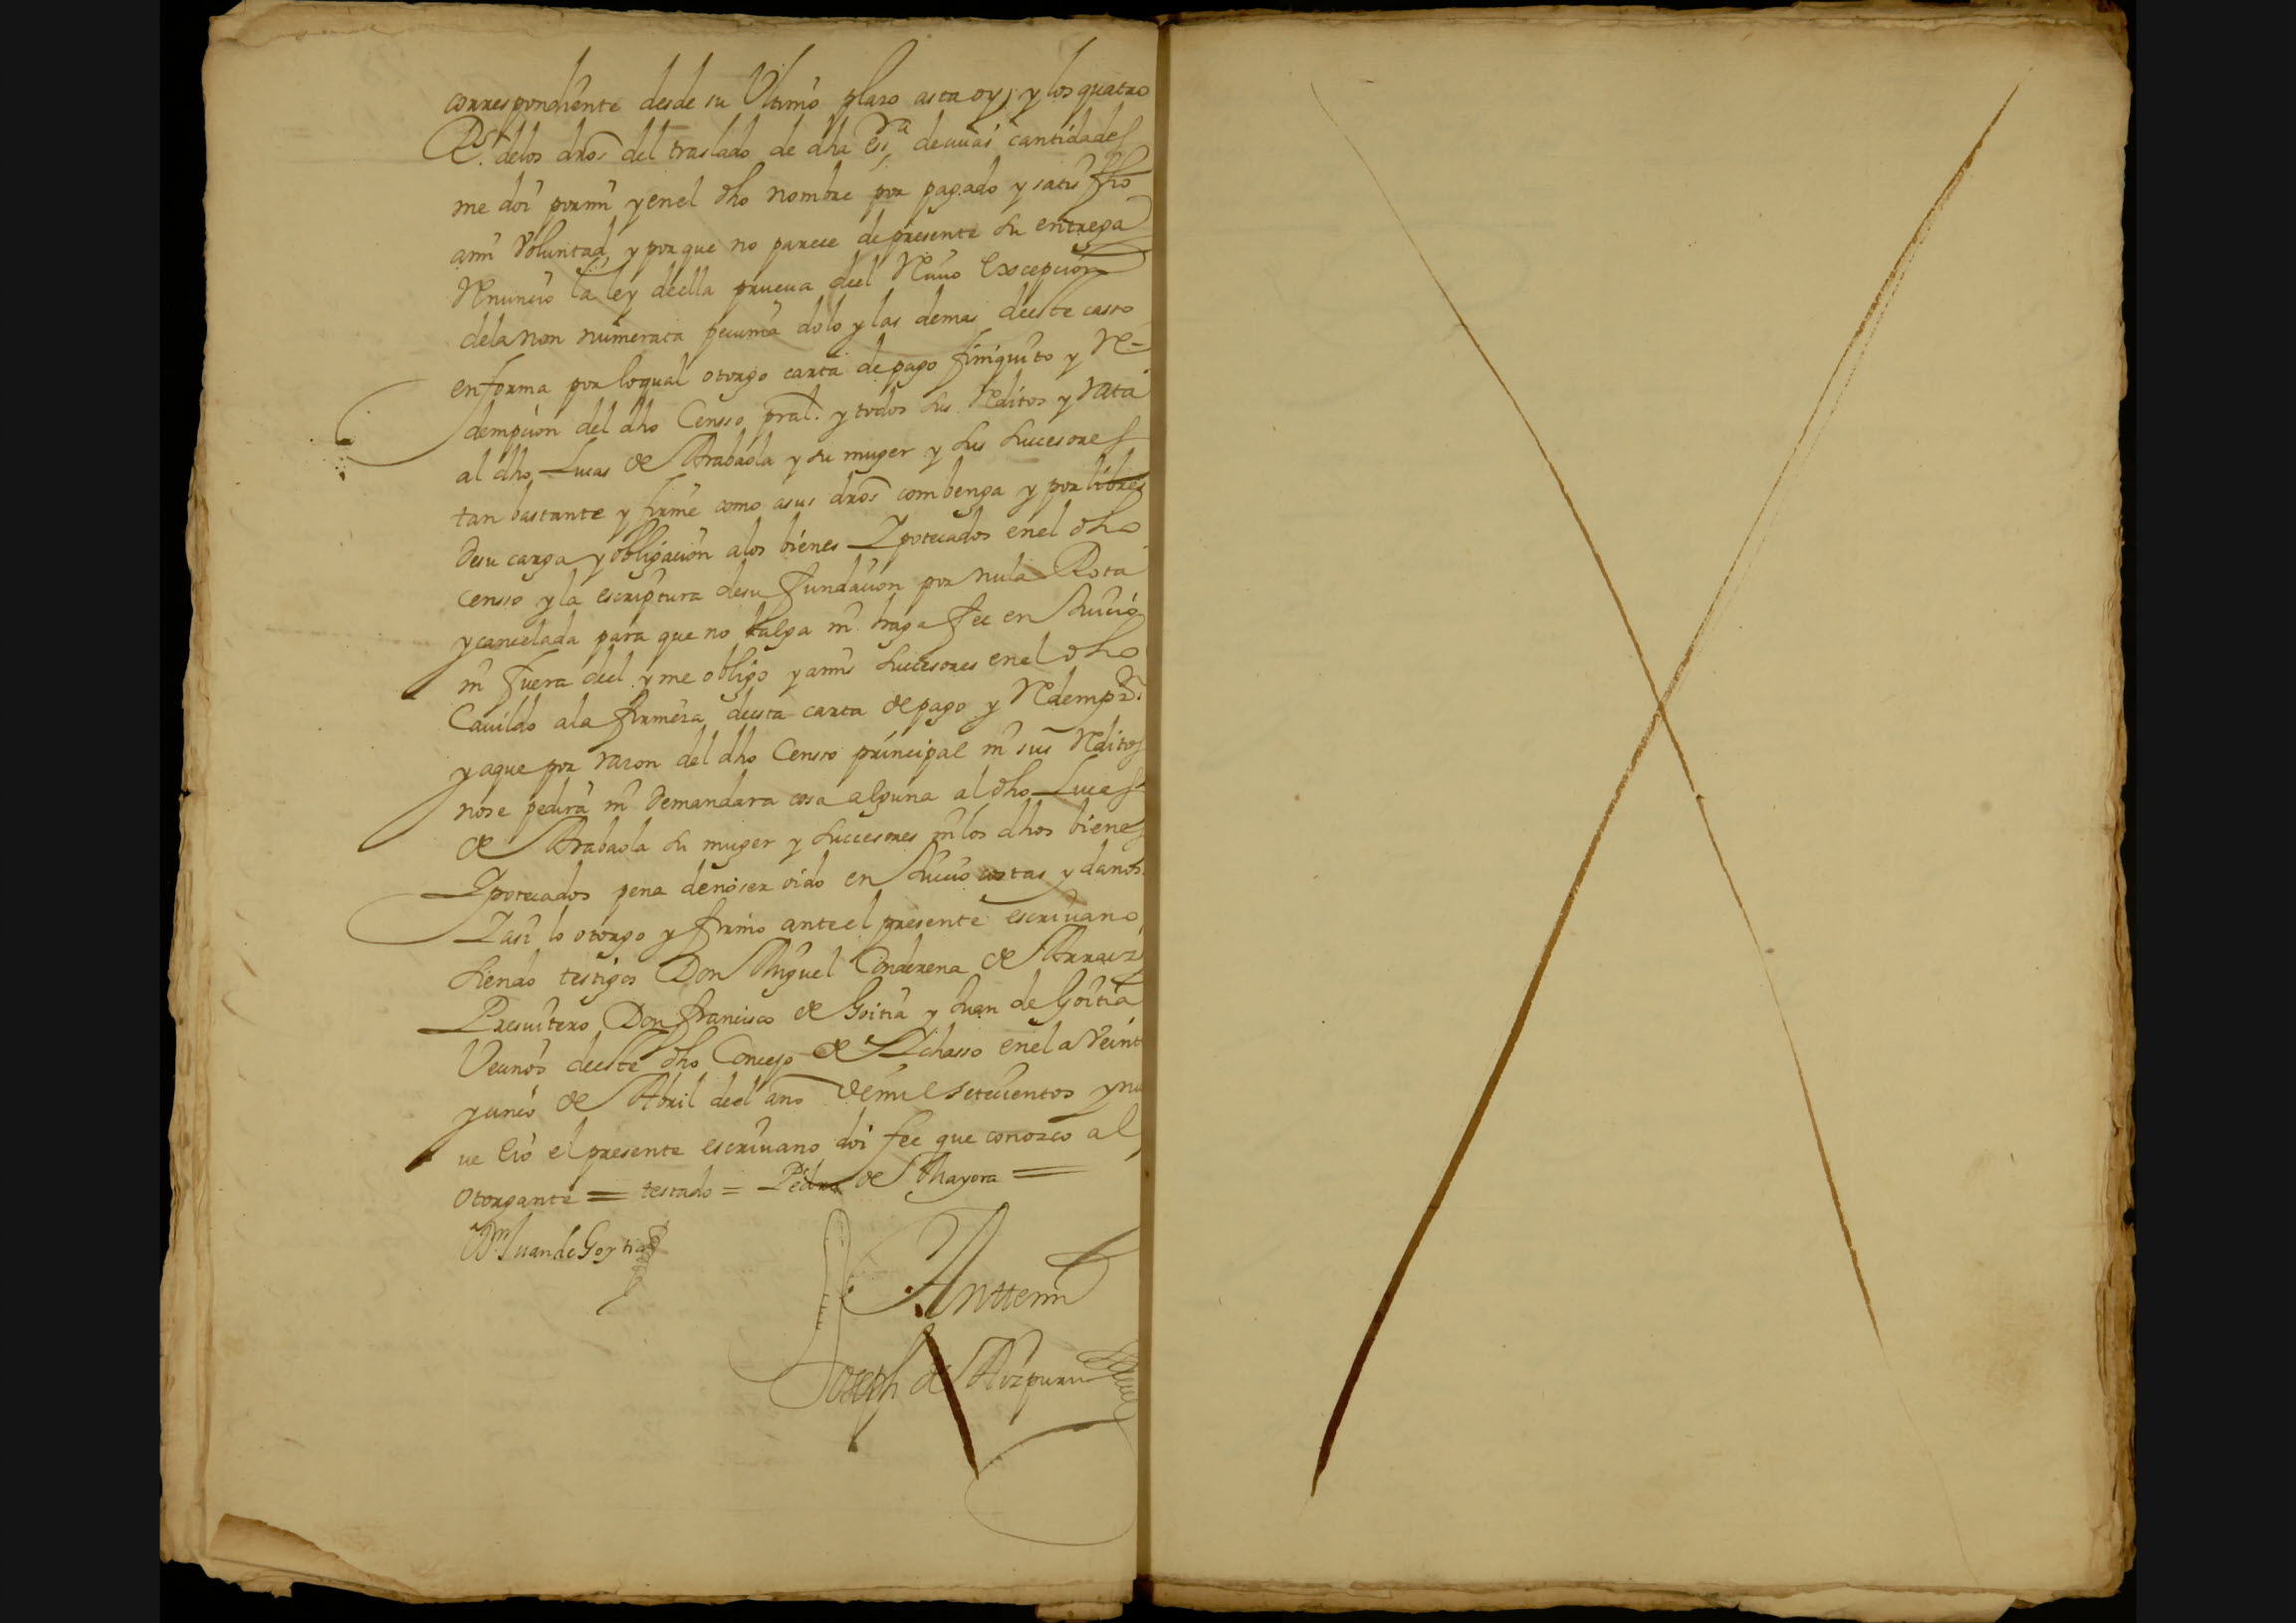 correspondiente desde su Ultimo plaso asta oy, y los quatro
Rs. delos dros del traslado de dha essra decuias cantidades
me doi pormi y enel dho nombre por pagado y satisffho
ami Voluntad, y por que no parece depresente su entrega
Renuncio la ley deella prueua deel Reciuo Excepcion
dela non numerata pecunia dolo y las demas deeste casso
en forma por loqual otorgo carta de pago finiquito y Re-
dempcion del dho Censso pral. y todos sus Reditos y rata
al dho Lucas de Arabaola y su muger y sus successores
tan bastante y firme como asus dros combenga y por libres
desu carga y obligacion alos bienes Ypotecados enel dho
censso y la escriptura desu fundacion por nula Rota
y cancelada para que no balga ni haga fee en Juicio
ni fuera deel y me obligo y amis successores enel dho
Cauildo ala firmesa deesta carta de pago y Redempon.
y aque por rason del dho Censso principal ni sus Reditos
nose pedira ni demandara cosa alguna al dho Lucas
de Arabaola su muger y successores ni los dhos bienes
Ypotecados pena denoser oido en Juicio costas y danos.
Y asi lo otorgo y firmo anteel presente escriuano
siendo testigos Don Miguel Conderena de Arraiz
Presuitero, Don francisco de Goitia y Juan de Goitia
Vecinos deeste dho Concejo de enel a Veint
y cinco de Abril deel ano de mil setecientos y nu
ue E io el presente escriuano doi fee que conozco al
otorgante = testado = Pedro de Mayora =
Dn Juan de Goytia
Anttemi
Joseph de Aizpuru